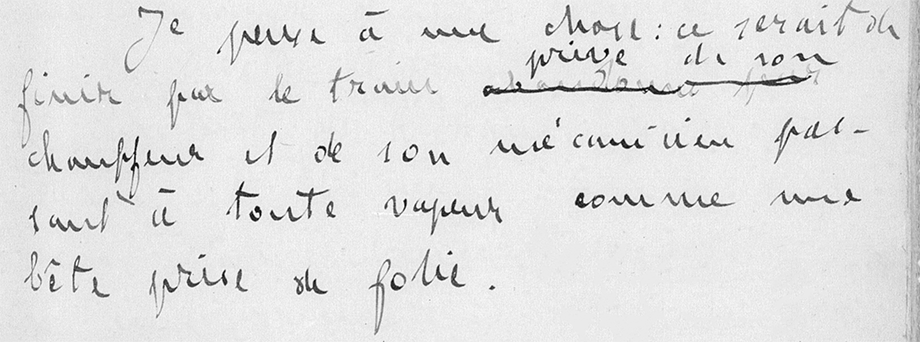 Je pense à une chose : ce serait de
privé de son
finir par le train abandonné par
chauffeur et de son mécanicien pas-
sant à toute vapeur comme une
bête prise de folie.